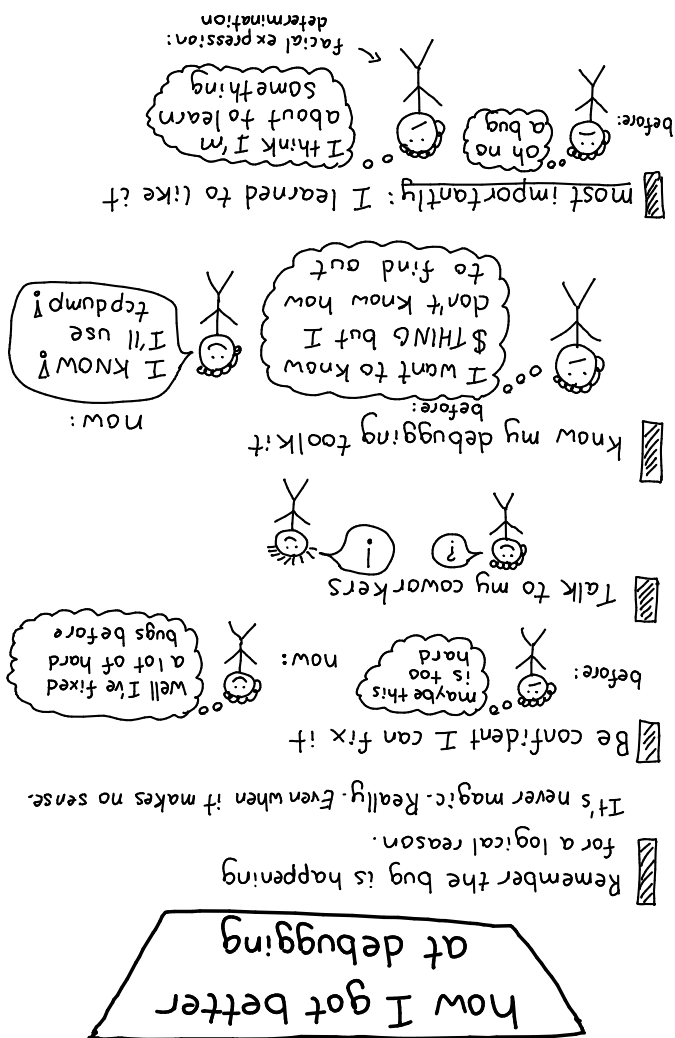 how I got better
at debugging
Remember the bug is happening
for a logical reason.
It's never magic. Really. Even when it makes no sense.
Be confident I can fix it
before:
maybe this
is too
hard
now:
well I've fixed
a lot of hard
bugs before
Talk to my coworkers
?
!
Know my debugging toolkit
before:
I want to know
$THING but I
don't know how
to find out
now:
I KNOW!
I'll use
tcpdump!
most importantly: I learned to like it
before:
oh no
a bug
I think I'm
about to learn
something
facial expression:
determination